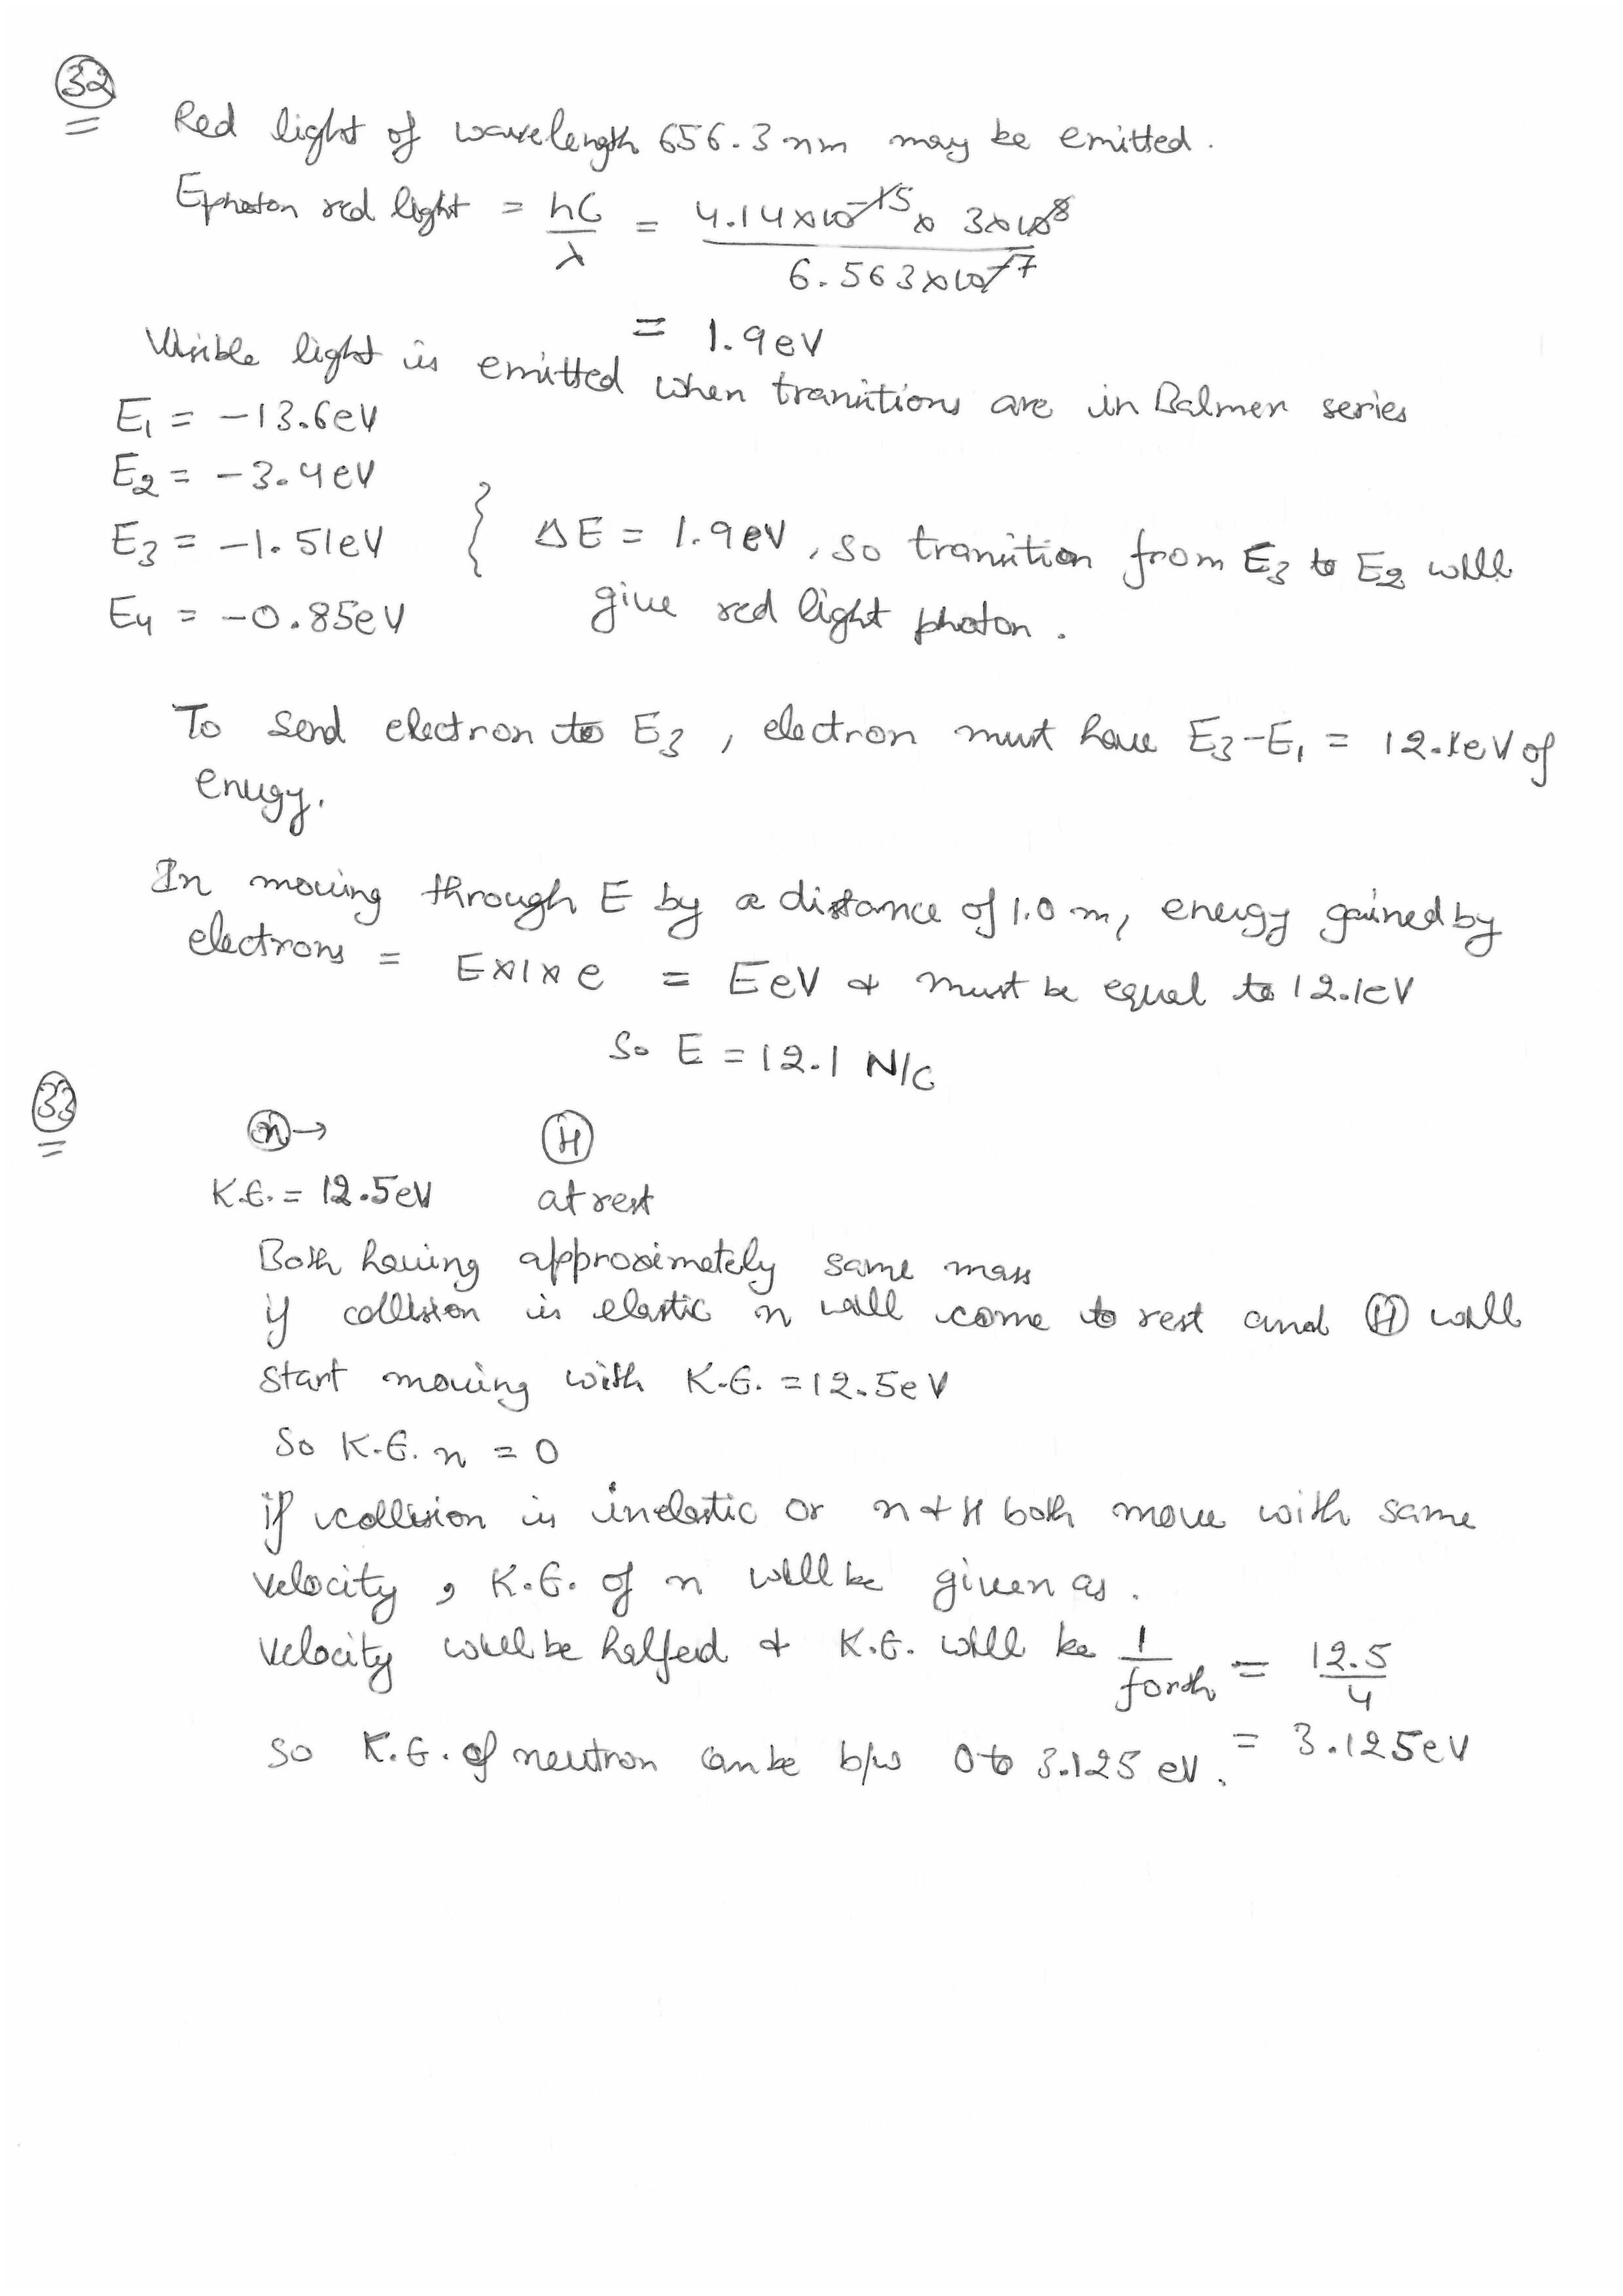 32
Red light of wavelength 656.3 nm may be emitted.
Ephoton red light = hC/λ = 4.14×10^-15 × 3×10^8 / 6.563×10^-7
= 1.9eV
Visible light is emitted when transitions are in Balmer series
E1 = -13.6eV
E2 = -3.4eV
E3 = -1.51eV } ΔE = 1.9eV, so transition from E3 to E2 will
E4 = -0.85eV give red light photon.
To send electron to E3, electron must have E3-E1 = 12.1eV of
energy.
In moving through E by a distance of 1.0 m, energy gained by
electrons = E×1×e = EeV & must be equal to 12.1eV
So E = 12.1 N/C
33
n → H
K.E. = 12.5eV at rest
Both having approximately same mass
if collision is elastic n will come to rest and H will
start moving with K.E. = 12.5eV
So K.E. n = 0
if collision is inelastic or n & H both move with same
velocity, K.E. of n will be given as.
velocity will be halfed & K.E. will be 1/forth = 12.5/4
= 3.125eV
so K.E. of neutron can be b/w 0 to 3.125 eV.